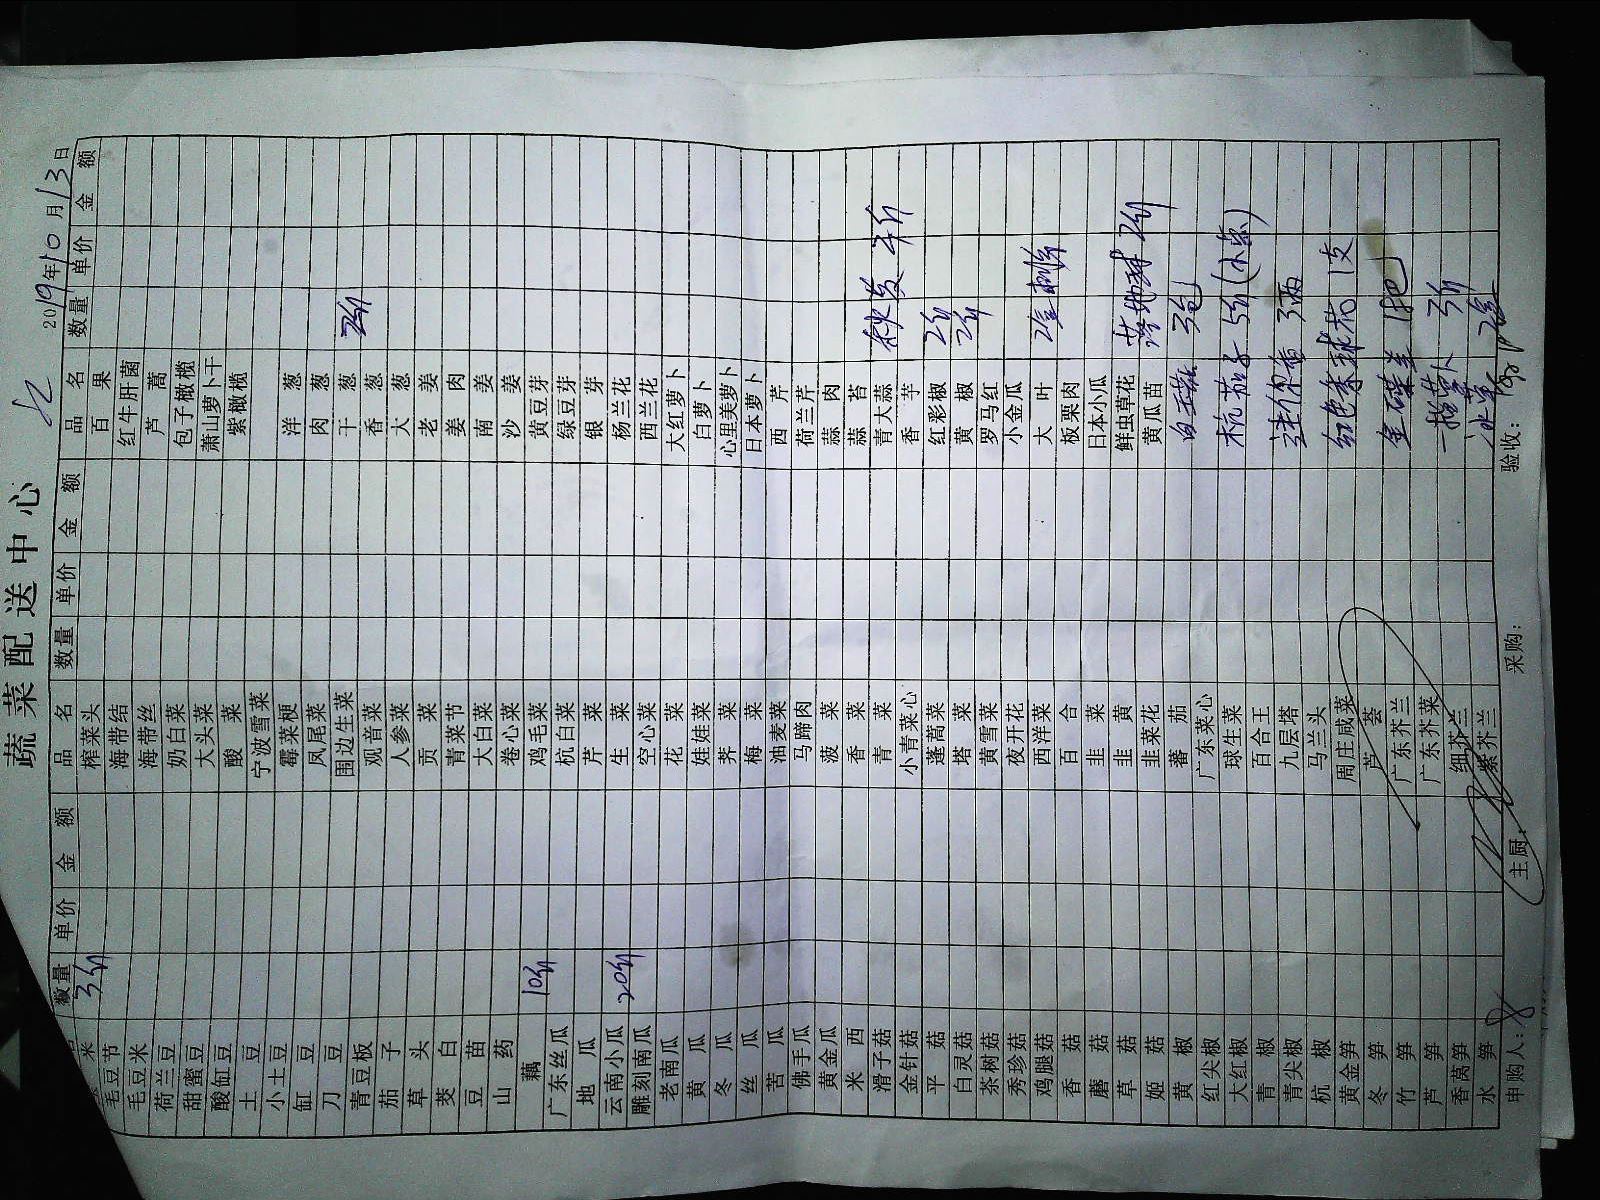 蔬菜配送中心
2019年10月13日
品名 数量 单价 金额 品名 数量 单价 金额 品名 数量 单价 金额
米 3斤 榨菜头 百果
毛豆节 海带结 红牛肝菌
毛豆米 海带丝 芦蒿
荷兰豆 奶白菜 包子橄榄
甜蜜豆 大头菜 萧山萝卜干
酸缸豆 酸菜 紫橄榄
土豆 宁波雪菜
小土豆 霉菜梗 洋葱
缸豆 凤尾菜 肉葱
刀豆 围边生菜 干葱 2斤
青豆板 观音菜 香葱
茄子 人参菜 大葱
草头 贡菜 老姜
茭白 青菜节 姜肉
豆苗 大白菜 南姜
山药 卷心菜 沙姜
藕 10斤 鸡毛菜 黄豆芽
广东丝瓜 杭白菜 绿豆芽
地瓜 芹菜 银芽
云南小瓜 20斤 生菜 杨兰花
雕刻南瓜 空心菜 西兰花
老南瓜 花菜 大红萝卜
黄瓜 娃娃菜 白萝卜
冬瓜 荠菜 心里美萝卜
丝瓜 梅菜 日本萝卜
苦瓜 油麦菜 西芹
佛手瓜 马蹄肉 荷兰芹
黄金瓜 菠菜 蒜肉
米西 香菜 蒜苔
滑子菇 青菜 青大蒜
金针菇 小青菜心 香芋
平菇 蓬蒿菜 红彩椒 2斤
白灵菇 塔菜 黄椒 2斤
茶树菇 黄雪菜 罗马红
秀珍菇 夜开花 小金瓜
鸡腿菇 西洋菜 大叶 2盒
香菇 百合 板栗肉
蘑菇 韭菜 日本小瓜
草菇 韭黄 鲜虫草花
姬菇 韭菜花 黄瓜苗
黄椒 蕃茄 3包
红尖椒 广东菜心
大红椒 球生菜 杭茄子 5斤
青椒 百合王
青尖椒 九层塔 迷你 3两
杭椒 马兰头
黄金笋 周庄咸菜 红色 1支
冬笋 芦荟
竹笋 广东芥兰 1把
芦笋 广东芥菜
香莴笋 细芥兰 3斤
水笋 紫芥兰 冰菜 2盒
申购人： 主厨： 采购： 验收：